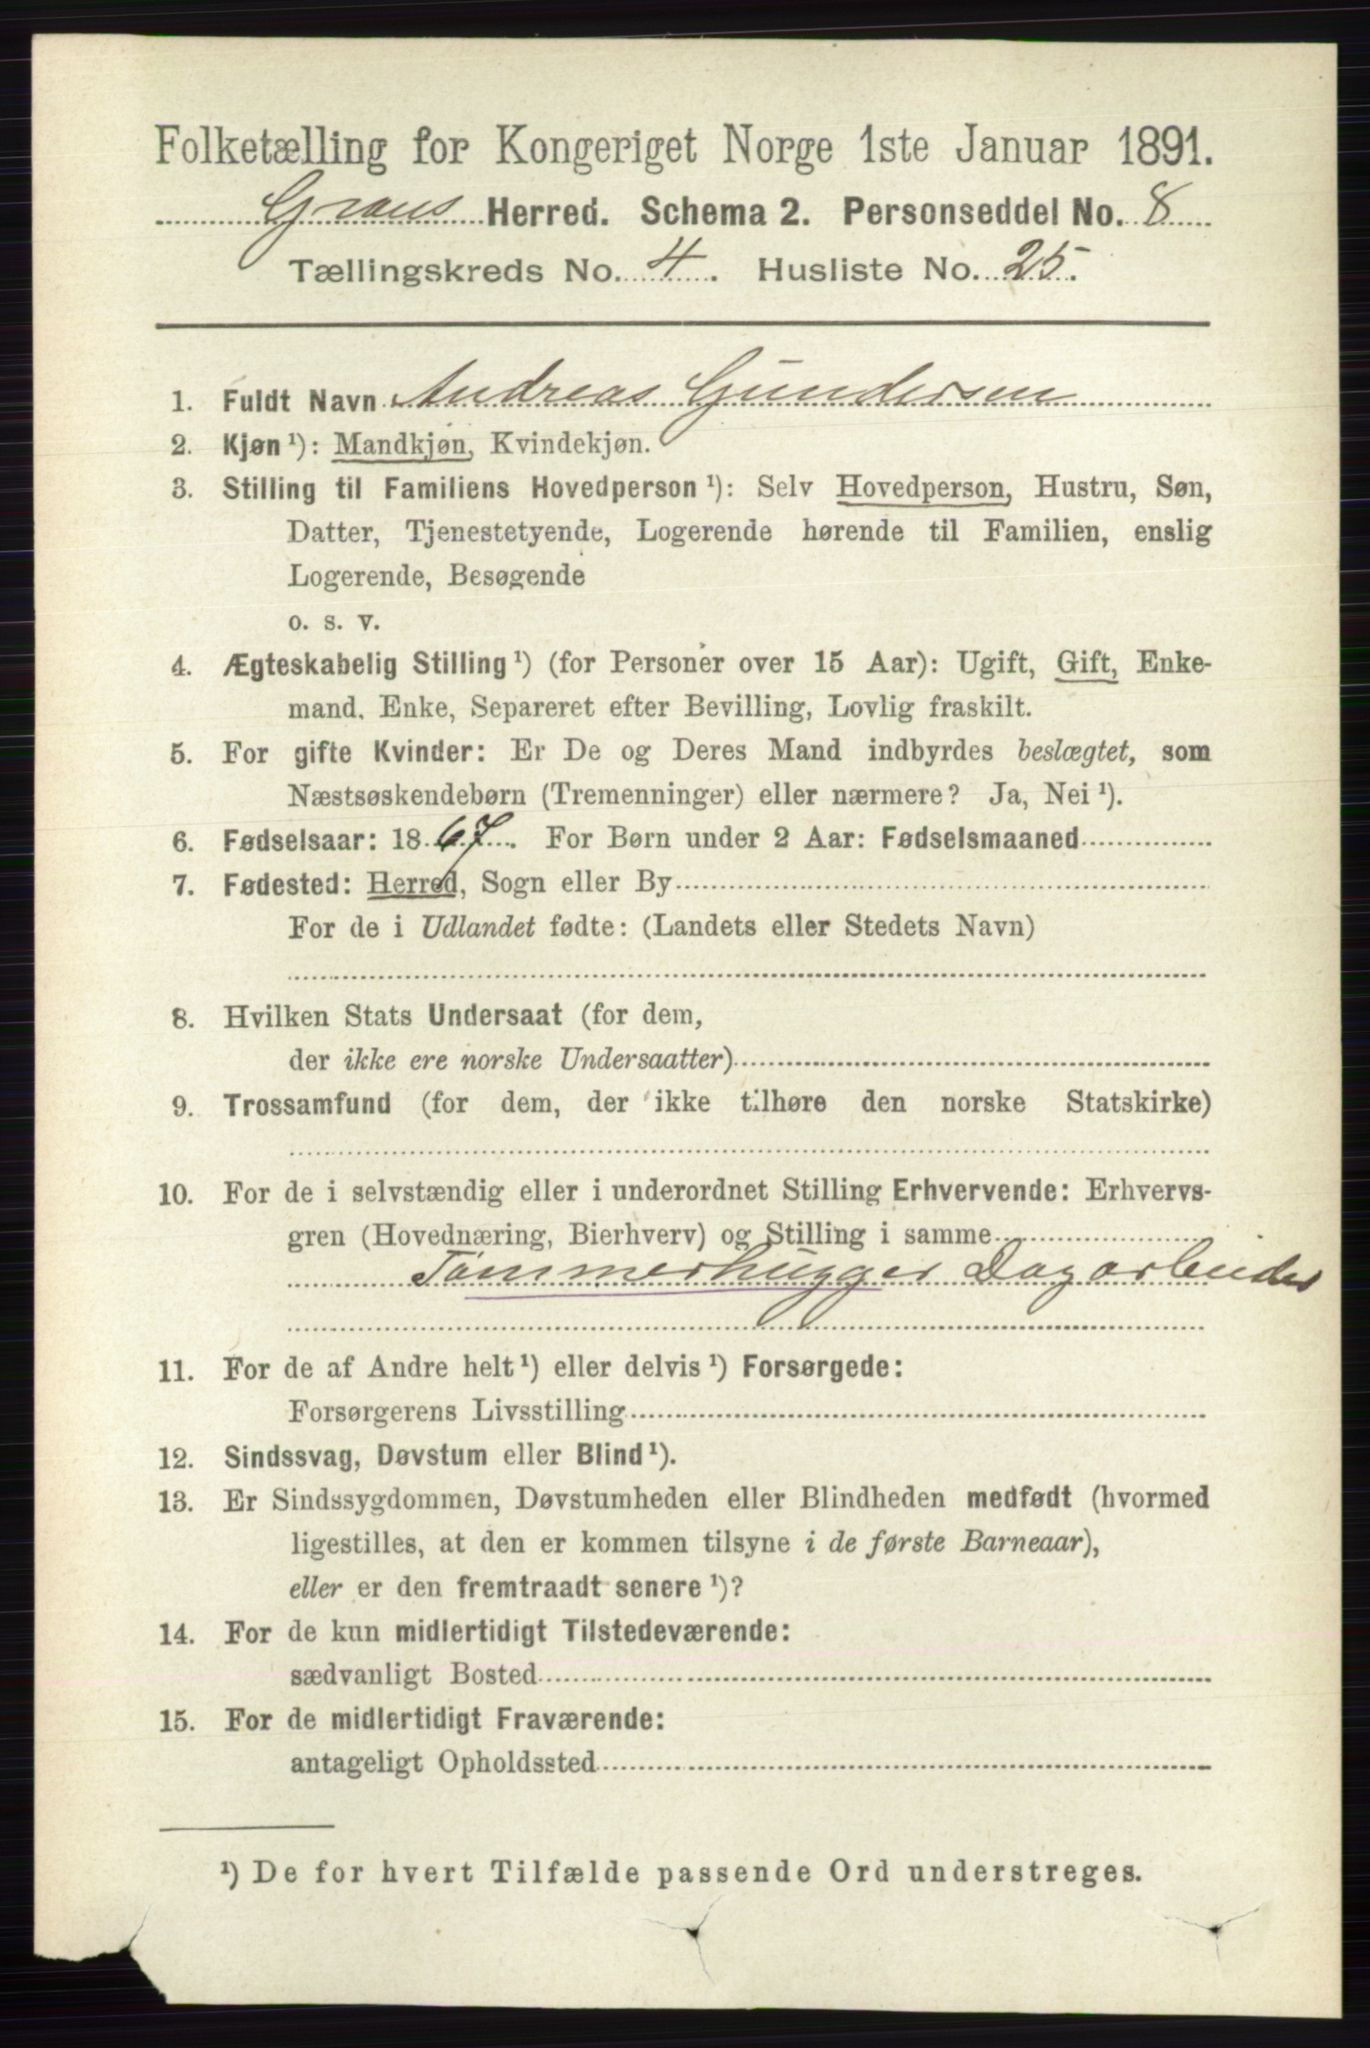 Folketælling for Kongeriget Norge 1ste Januar 1891.
Grans Herred. Schema 2. Personseddel No. 8
Tællingskreds No. 4. Husliste No. 25.
1. Fuldt Navn Andreas Gundersen
2. Kjøn ¹): Mandkjøn, Kvindekjøn.
3. Stilling til Familiens Hovedperson ¹): Selv Hovedperson, Hustru, Søn,
Datter, Tjenestetyende, Logerende hørende til Familien, enslig
Logerende, Besøgende
o. s. v.
4. Ægteskabelig Stilling ¹) (for Personer over 15 Aar): Ugift, Gift, Enke-
mand, Enke, Separeret efter Bevilling, Lovlig fraskilt.
5. For gifte Kvinder: Er De og Deres Mand indbyrdes beslægtet, som
Næstsøskendebørn (Tremenninger) eller nærmere? Ja, Nei ¹).
6. Fødselsaar: 1867. For Børn under 2 Aar: Fødselsmaaned
7. Fødested: Herred, Sogn eller By
For de i Udlandet fødte: (Landets eller Stedets Navn)
8. Hvilken Stats Undersaat (for dem,
der ikke ere norske Undersaatter)
9. Trossamfund (for dem, der ikke tilhøre den norske Statskirke)
10. For de i selvstændig eller i underordnet Stilling Erhvervende: Erhvervs-
gren (Hovednæring, Bierhverv) og Stilling i samme
Tømmerhugger Dagarbeider
11. For de af Andre helt ¹) eller delvis ¹) Forsørgede:
Forsørgerens Livsstilling
12. Sindssvag, Døvstum eller Blind ¹).
13. Er Sindssygdommen, Døvstumheden eller Blindheden medfødt (hvormed
ligestilles, at den er kommen tilsyne i de første Barneaar),
eller er den fremtraadt senere ¹)?
14. For de kun midlertidigt Tilstedeværende:
sædvanligt Bosted
15. For de midlertidigt Fraværende:
antageligt Opholdssted
¹) De for hvert Tilfælde passende Ord understreges.